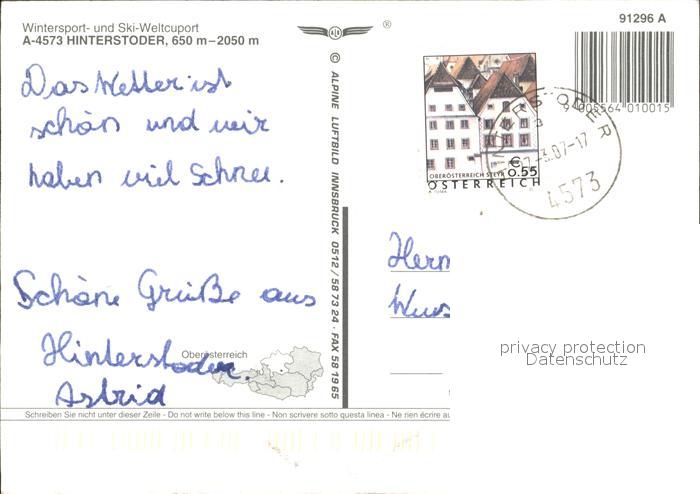 Wintersport- und Ski-Weltcuport
A-4573 HINTERSTODER, 650 m – 2050 m
®
91296 A
9 005564 010015
Das Wetter ist
schön und wir
haben viel Schnee.
Schöne Grüße aus
Hinterstoder.
Astrid
Oberösterreich
© ALPINE LUFTBILD INNSBRUCK 0512 / 58 73 24 · FAX 58 19 65
€ 0.55
OBERÖSTERREICH STEYR
ÖSTERREICH
HINTERSTODER
-3.07-17
4573
Herrn
privacy protection
Datenschutz
Schreiben Sie nicht unter dieser Zeile - Do not write below this line - Non scrivere sotto questa linea - Ne rien écrire au